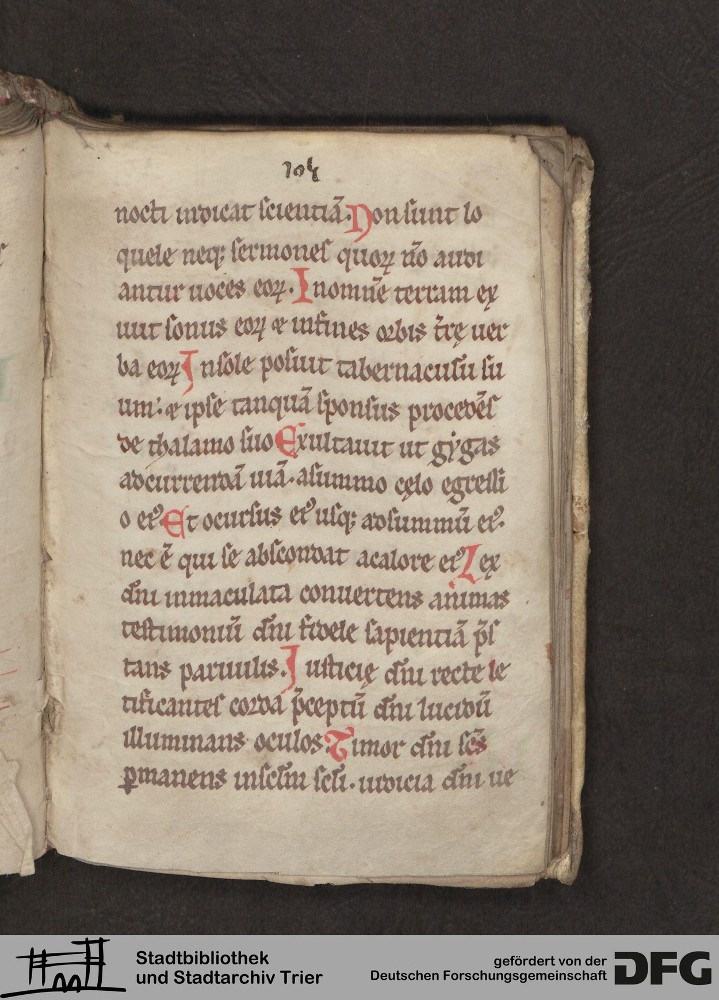 104
nocti indicat scientiā. Non sunt lo
quele neq; sermones quoꝝ n̄o audi
antur uoces eoꝝ. In omnē terram ex
iuit sonus eoꝝ & in fines orbis t̄rę uer
ba eoꝝ In sole posuit tabernaculū su
um: & ipse tanquā sponsus procedēs
de thalamo suo Exultauit ut gẏgas
ad currendā uiā. a summo cęlo egressi
o ei⁹. Et ocursus ei⁹ usq; ad summū ei⁹.
nec ē qui se abscondat a calore ei⁹ Lex
dn̄i inmaculata conuertens animas
testimoniū dn̄i fidele sapientiā p̄s
tans paruulis. Iusticię dn̄i recte le
tificantes corda p̄ceptū dn̄i lucidū
illuminans oculos: Timor dn̄i sc̄s
ꝑmanens in sc̄lm sc̄li. iudicia dn̄i ue
Stadtbibliothek
und Stadtarchiv Trier
gefördert von der
Deutschen Forschungsgemeinschaft
DFG